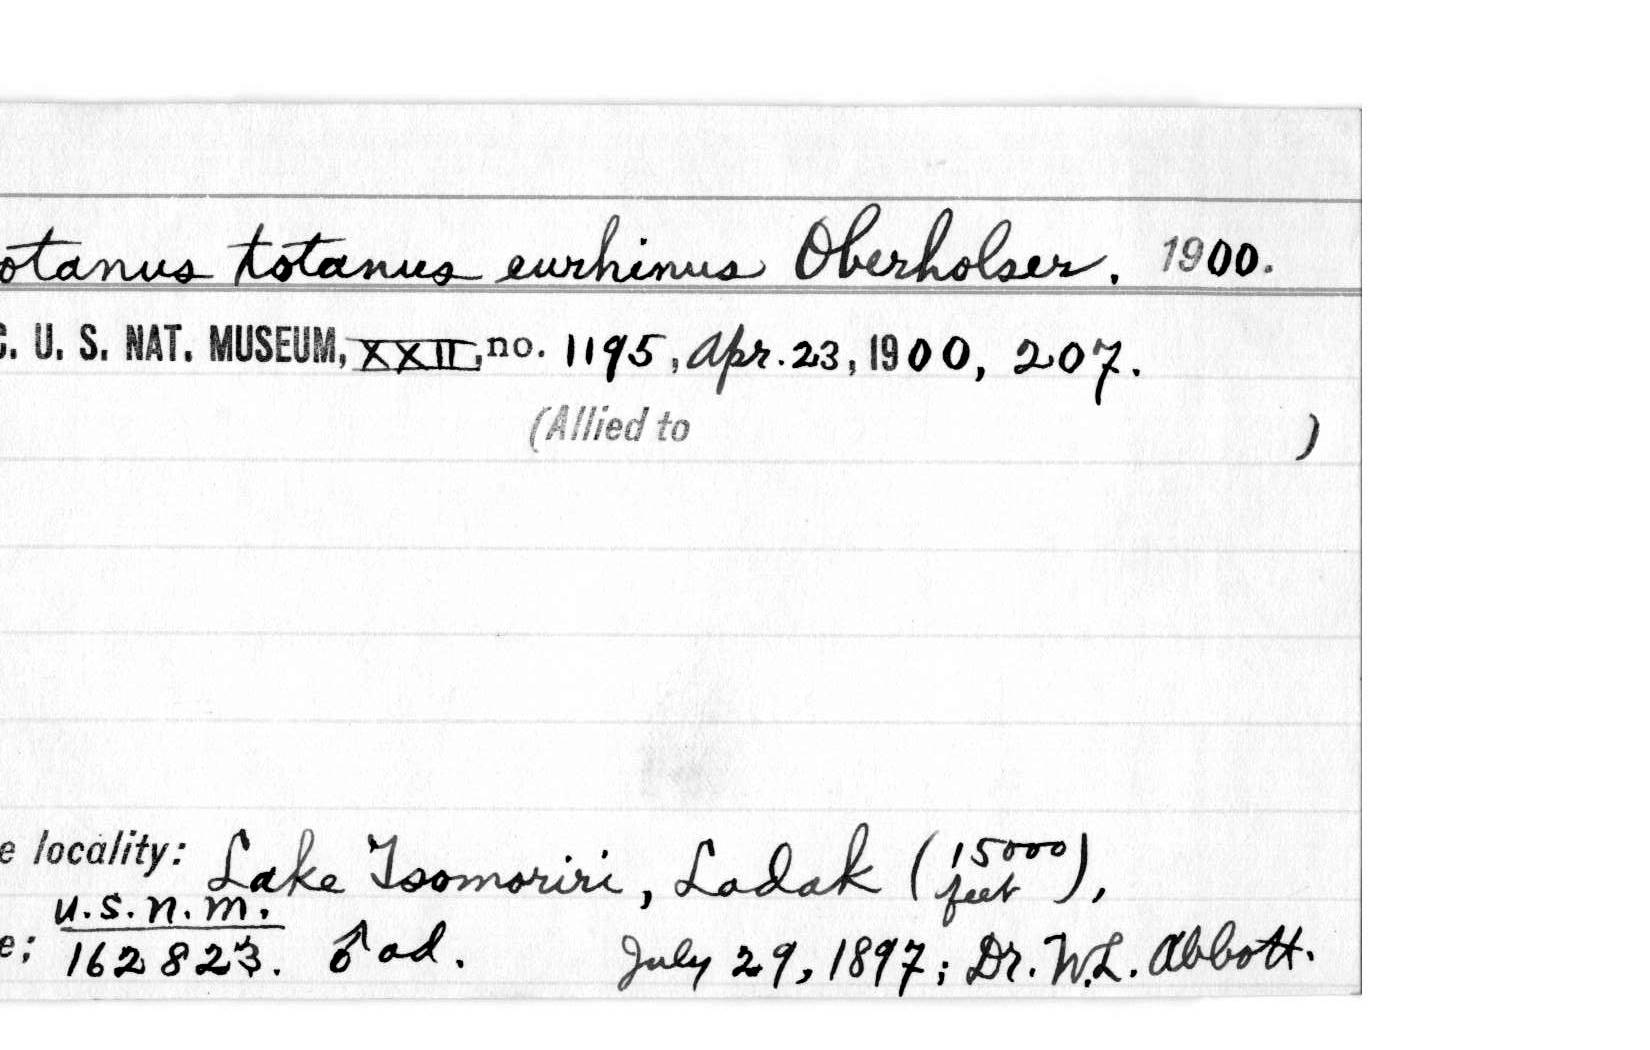 otanus totanus eurhinus Oberholser. 1900.
C. U. S. NAT. MUSEUM, XXII, no. 1195, Apr. 23, 1900, 207.
(Allied to )
e locality: Lake Tsomoriri, Ladak (15000 feet),
U.S.N.M.
e; 162823. ♂ ad. July 29, 1897; Dr. W.L. Abbott.